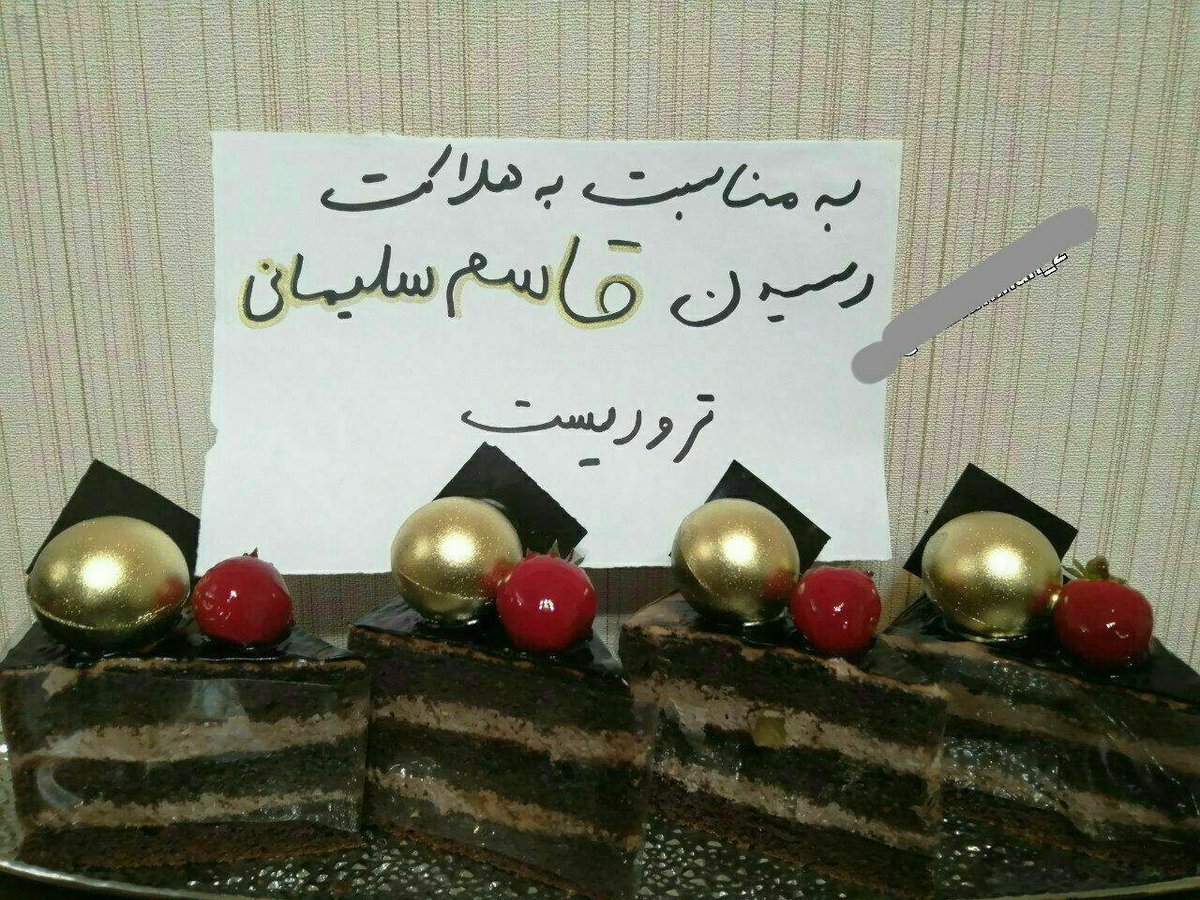 به مناسبت به هلاکت
رسیدن قاسم سلیمانی
تروریست